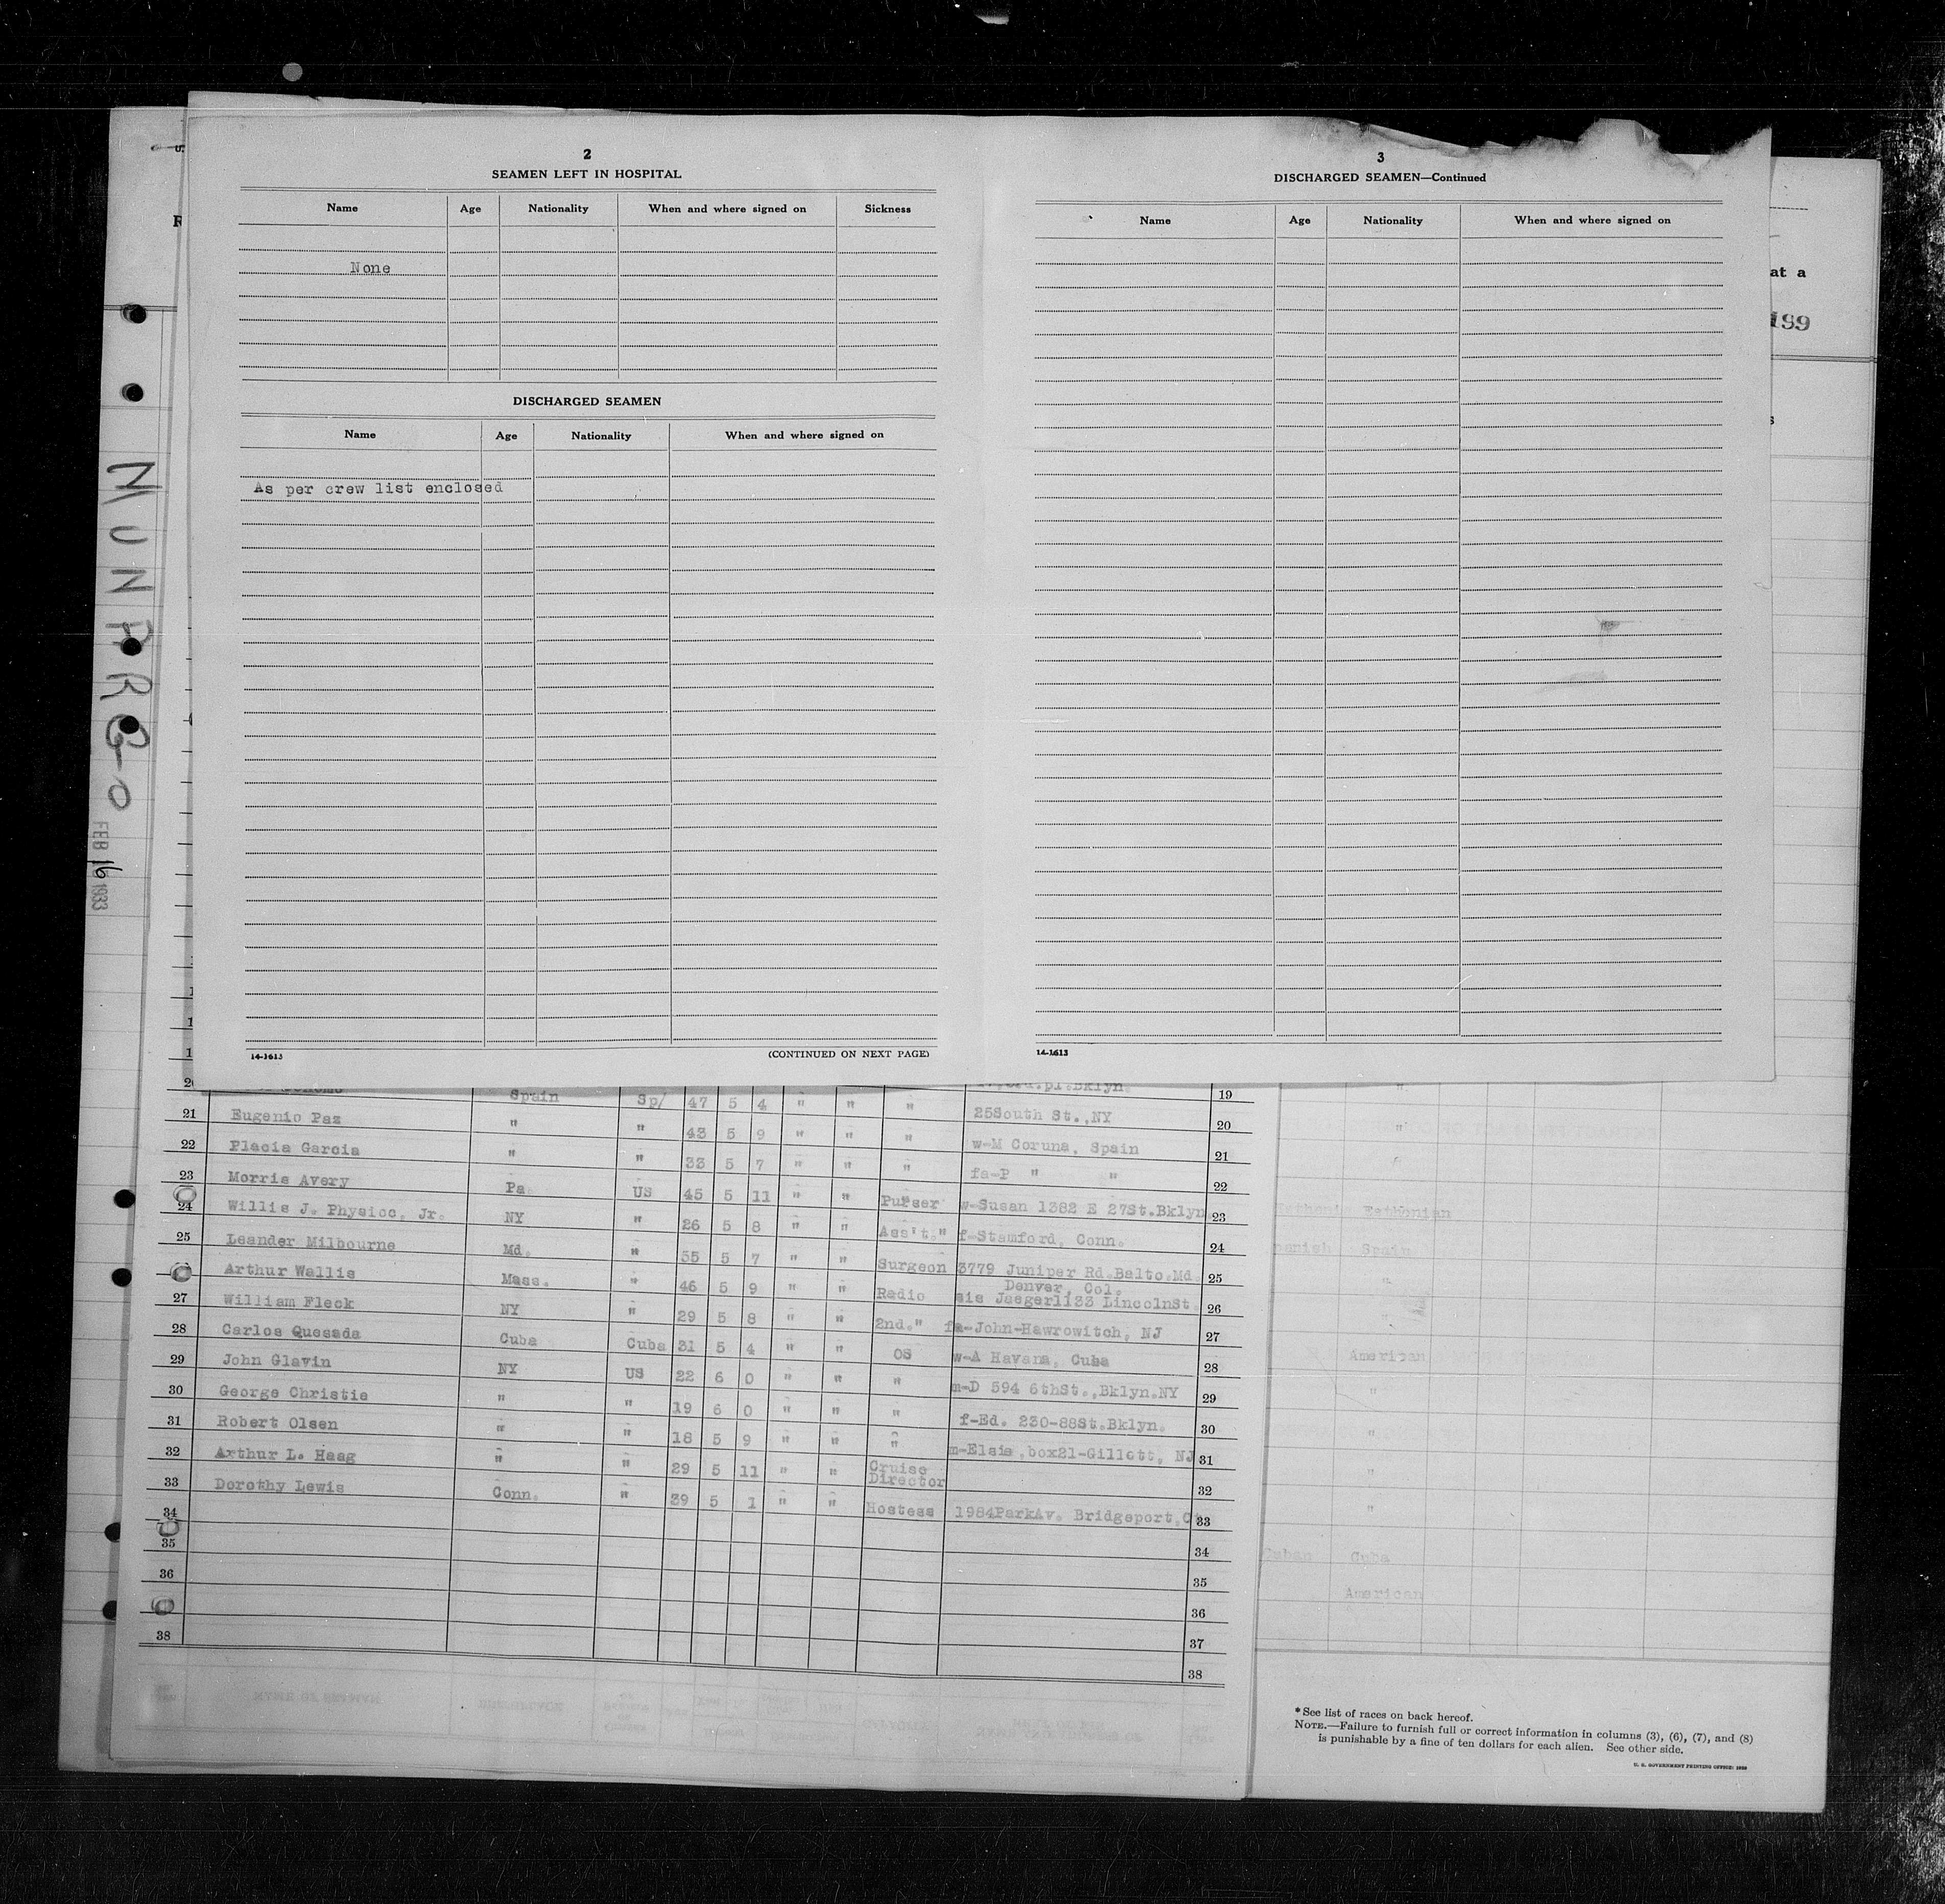 2
SEAMEN LEFT IN HOSPITAL
Name Age Nationality When and where signed on Sickness
None
DISCHARGED SEAMEN
Name Age Nationality When and where signed on
As per crew list enclosed
14-1613 (CONTINUED ON NEXT PAGE)
3
DISCHARGED SEAMEN—Continued
Name Age Nationality When and where signed on
14-1613
at a
189
MUNARGO
FEB 16 1933
Spain Sp/ 47 5 4 " " " 25South St.,NY
21 Eugenio Paz " " 43 5 9 " " " w-M Coruna, Spain
22 Placia Garcia " " 33 5 7 " " " fa-P " "
23 Morris Avery Pa US 45 5 11 " " Purser w-Susan 1382 E 27St.Bklyn
24 Willis J. Physioc, Jr. NY " 26 5 8 " " Ass't." f-Stamford, Conn.
25 Leander Milbourne Md. " 55 5 7 " " Surgeon 3779 Juniper Rd.Balto.Md.
Arthur Wallis Mass. " 46 5 9 " " Radio sis Jaeger1133 LincolnSt. Denver, Col.
27 William Fleck NY " 29 5 8 " " 2nd." fa-John-Hawrowitch, NJ
28 Carlos Quesada Cuba Cuba 31 5 4 " " OS w-A Havana, Cuba
29 John Glavin NY US 22 6 0 " " " m-D 594 6thSt.,Bklyn.NY
30 George Christie " " 19 6 0 " " " f-Ed. 230-88St.Bklyn.
31 Robert Olsen " " 18 5 9 " " " m-Elsie,box21-Gillett, NJ
32 Arthur L. Haag " " 29 5 11 " " Cruise Director
33 Dorothy Lewis Conn. " 39 5 1 " " Hostess 1984ParkAv. Bridgeport,C
34
35
36
38
19
20
21
22
23
24
25
26
27
28
29
30
31
32
33
34
35
36
37
38
Esthonian
Spanish Spain
American
Cuban Cuba
American
* See list of races on back hereof.
NOTE.—Failure to furnish full or correct information in columns (3), (6), (7), and (8)
is punishable by a fine of ten dollars for each alien. See other side.